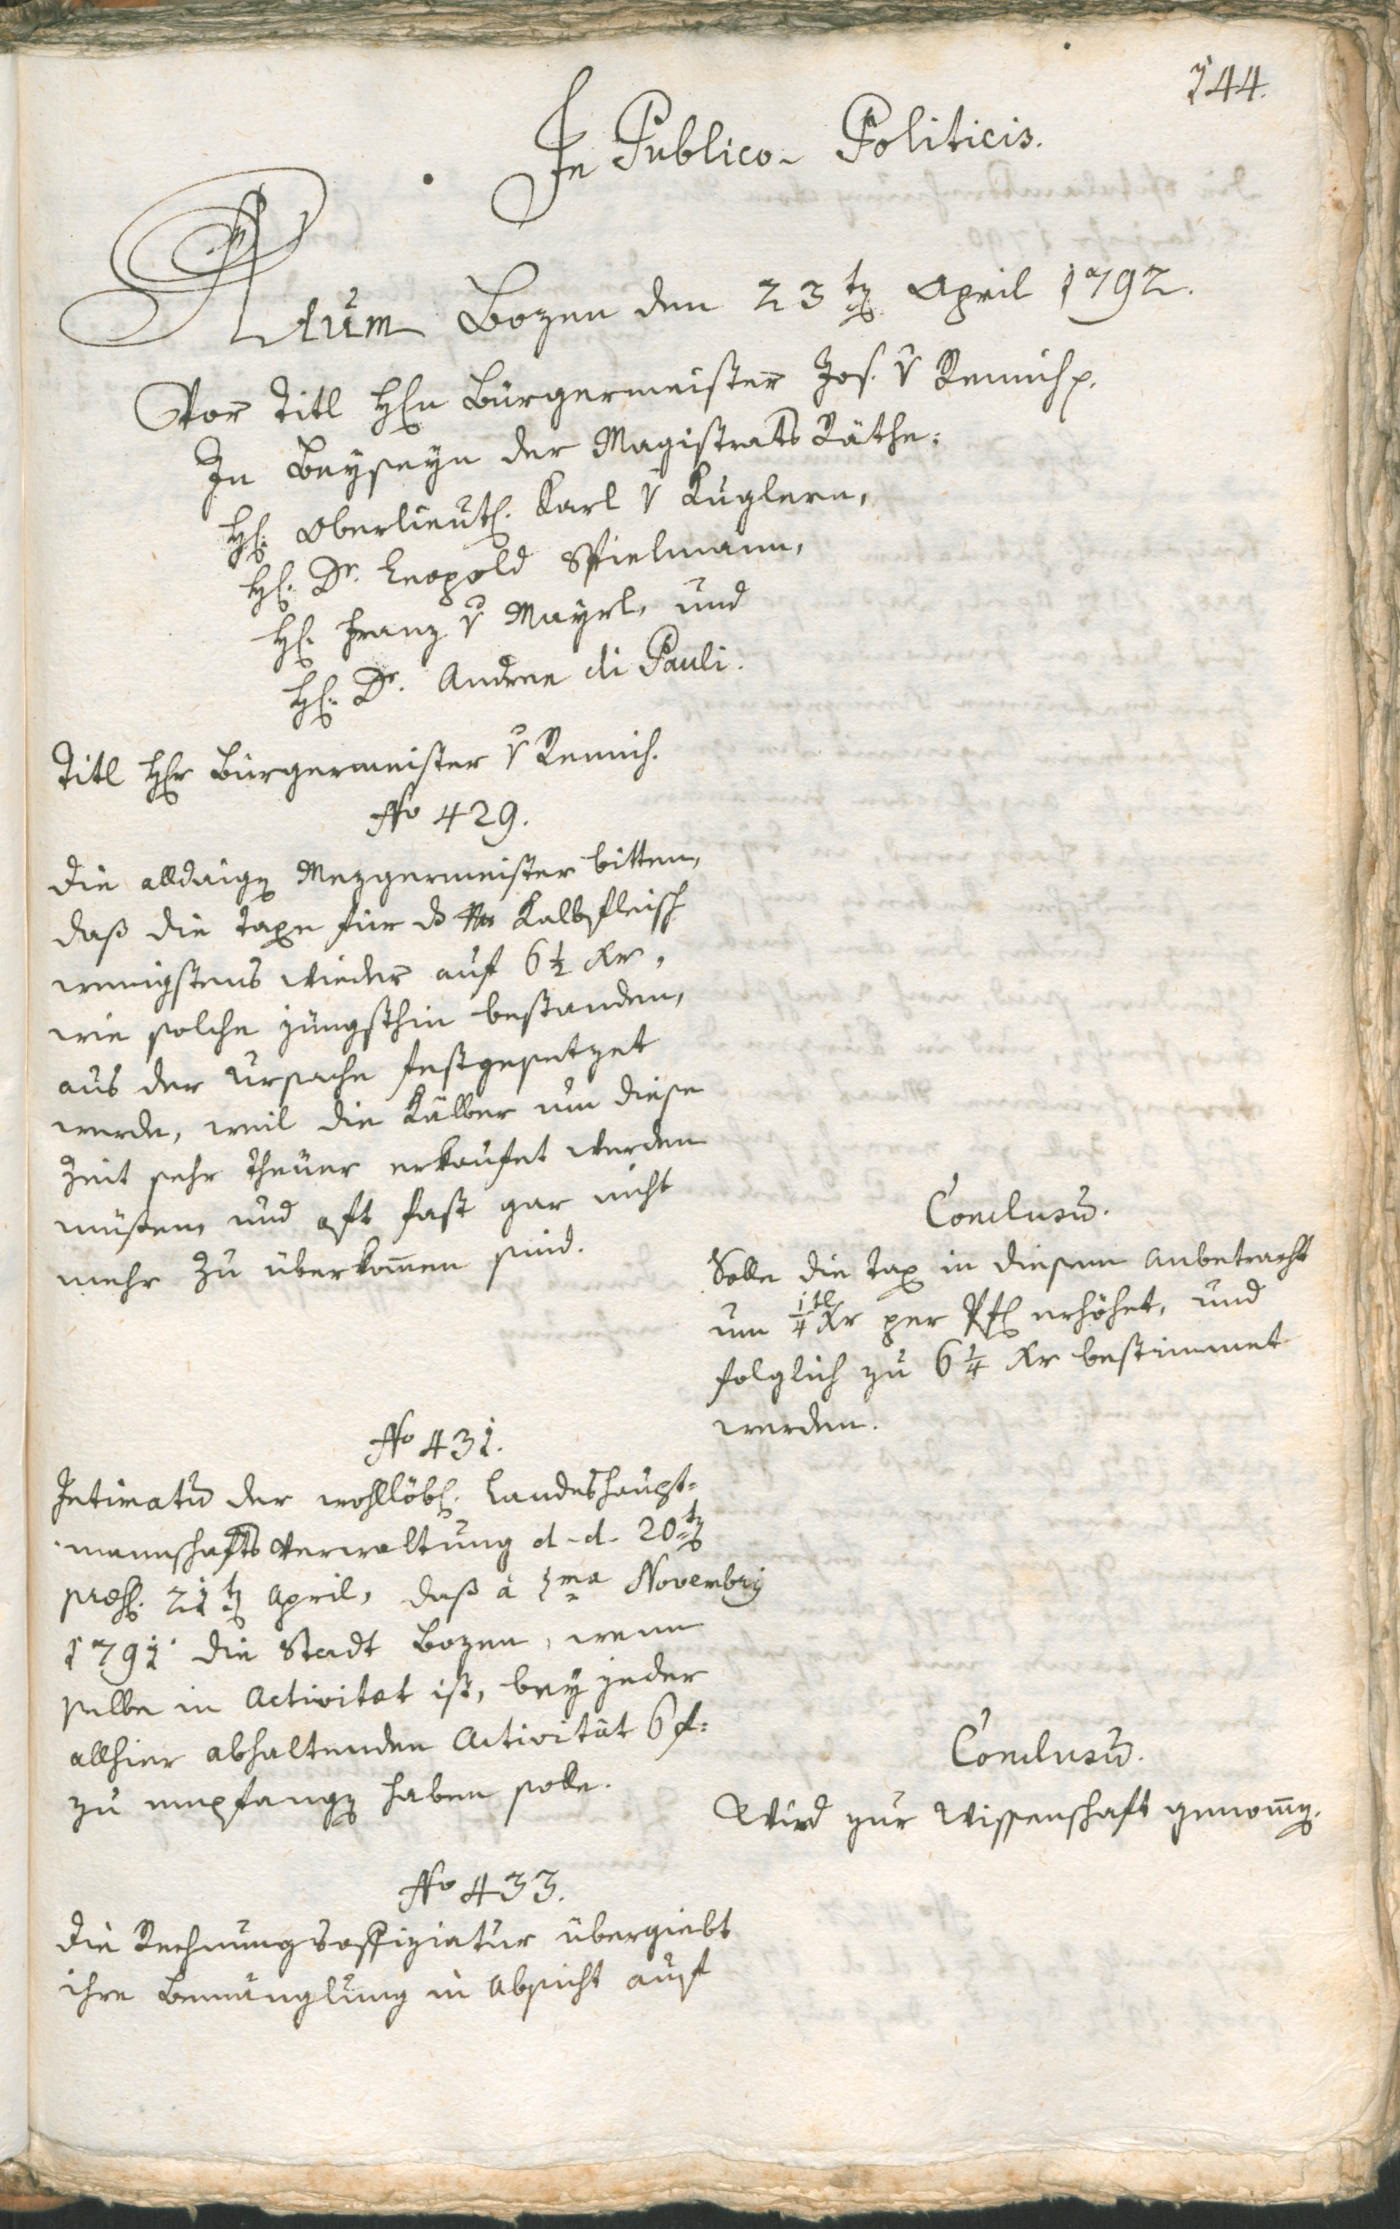 144.
In Publico- Politicis.
Actum Bozen den 23t[en] April 1792.
Vor Titl H[er]n Bürgermeister Jos. v Remich p.
In Beyseyn der Magistrats Räthe:
H[err] Oberlieut[enant]. Karl v Kuglern,
H[err] Dr. Leopold Spielmann,
H[err] Franz v Mayrl, und
H[err] Dr. Andree di Pauli.
Titl H[er]r Bürgermeister v Remich.
No 429.
Die alldaig[en] Mezgermeister bitten,
daß die Taxe für d[as] Kalbfleisch
wenigstens wieder auf 6 1/2 Kr,
wie solche jüngsthin bestanden,
aus der Ursache festgesetzet
werde, weil die Kälber um diese
Zeit sehr theuer erkaufet werden
müßen, und oft fast gar nicht
mehr zu überkom̅en sind.
Conclusu̅.
Solle die Tax in diesem Anbetracht
um 1/4tl Kr per Pf[und] erhöhet, und
folglich zu 6 1/4 Kr bestimmet
werden.
No 431.
Intimatu̅ der wohllöbl[ichen]. Landeshaupt=
mannschafts Verwaltung d.d. 20t[en]
præs[entato]. 21t[en] April, daß à 1ma Novembris
1791 die Stadt Bozen, wenn
selbe in Activitæt ist, bey jeder
allhier abhaltenden Activität 6 f:
zu empfang[en] haben solle.
Conclusu̅.
Wird zur Wissenschaft genom̅[en].
No 433.
Die Rechnungsoffiziatur übergiebt
ihre Bemänglung in Absicht auf